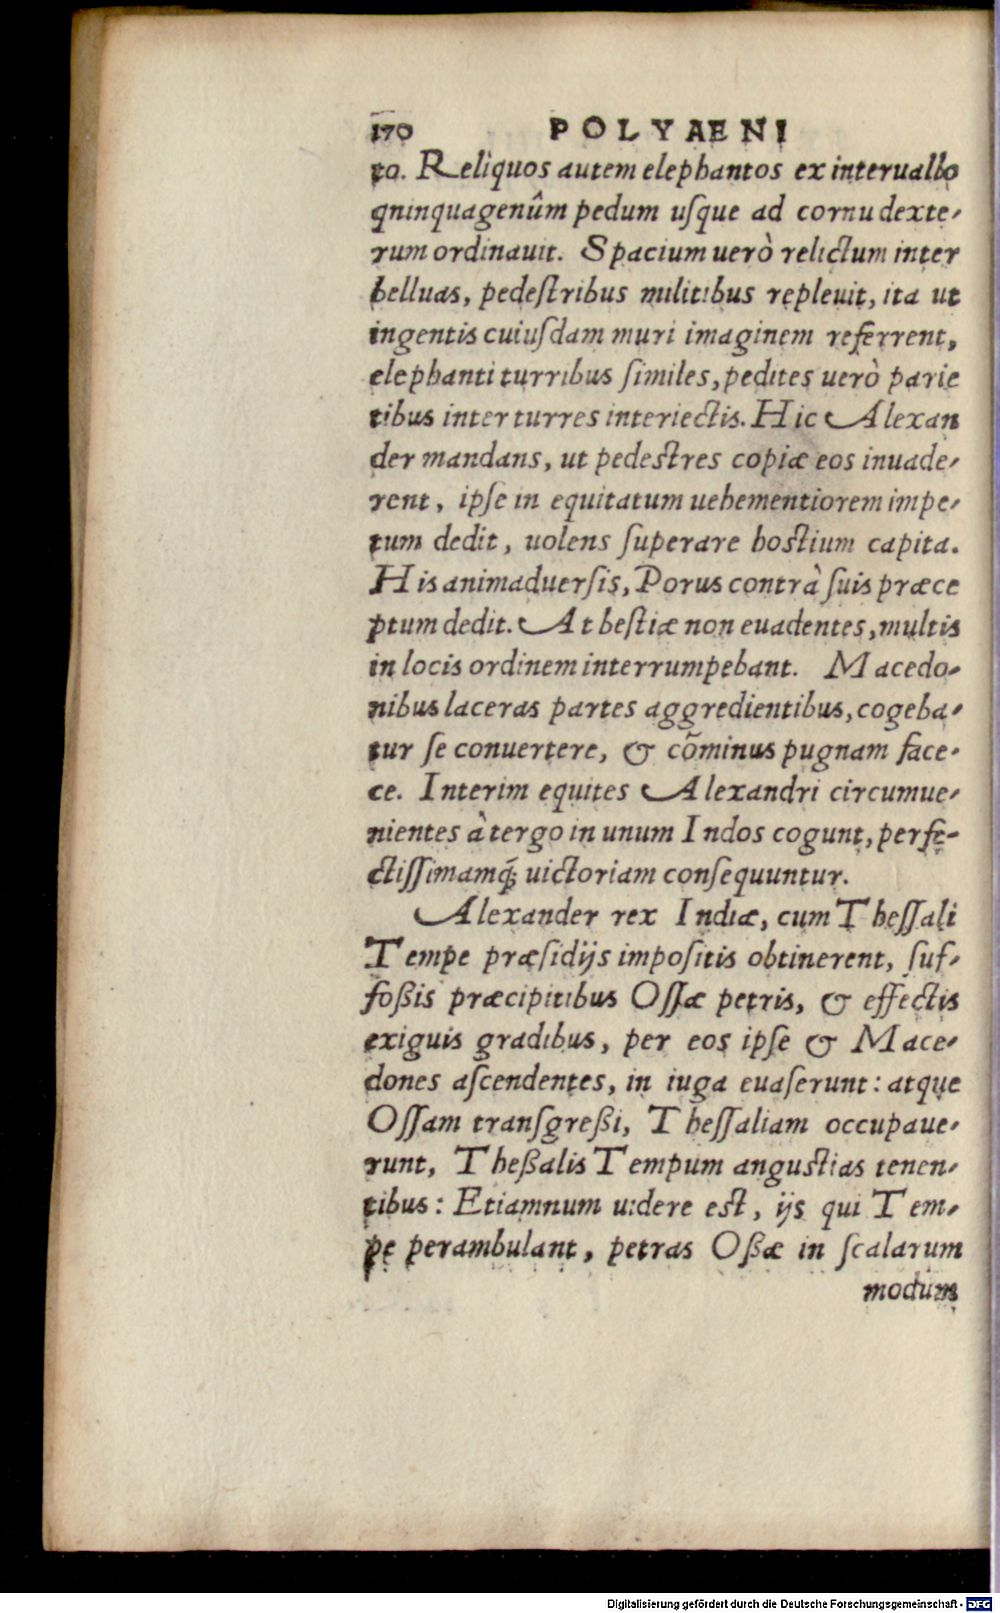 170 POLYAENI
to. Reliquos autem elephantos ex interuallo
qninquagenûm pedum uſque ad cornu dexte-
rum ordinauit. Spacium uerò relictum inter
belluas, pedeſtribus militibus repleuit, ita ut
ingentis cuiuſdam muri imaginem referrent,
elephanti turribus ſimiles, pedites uerò parie
tibus inter turres interiectis. Hic Alexan
der mandans, ut pedeſtres copiæ eos inuade-
rent, ipſe in equitatum uehementiorem impe-
tum dedit, uolens ſuperare hoſtium capita.
His animaduerſis, Porus contrà ſuis præce
ptum dedit. At beſtiæ non euadentes, multis
in locis ordinem interrumpebant. Macedo-
nibus laceras partes aggredientibus, cogeba-
tur ſe conuertere, & cõminus pugnam face-
ce. Interim equites Alexandri circumue-
nientes à tergo in unum Indos cogunt, perfe-
ctiſſimamq́; uictoriam conſequuntur.
Alexander rex Indiæ, cum Theſſali
Tempe præſidijs impoſitis obtinerent, ſuf-
foßis præcipitibus Oſſæ petris, & effectis
exiguis gradibus, per eos ipſe & Mace-
dones aſcendentes, in iuga euaſerunt: atque
Oſſam tranſgreßi, Theſſaliam occupaue-
runt, Theßalis Tempum anguſtias tenen-
tibus: Etiamnum uidere eſt, ijs qui Tem-
pe perambulant, petras Oßæ in ſcalarum
modum
Digitalisierung gefördert durch die Deutsche Forschungsgemeinschaft - DFG